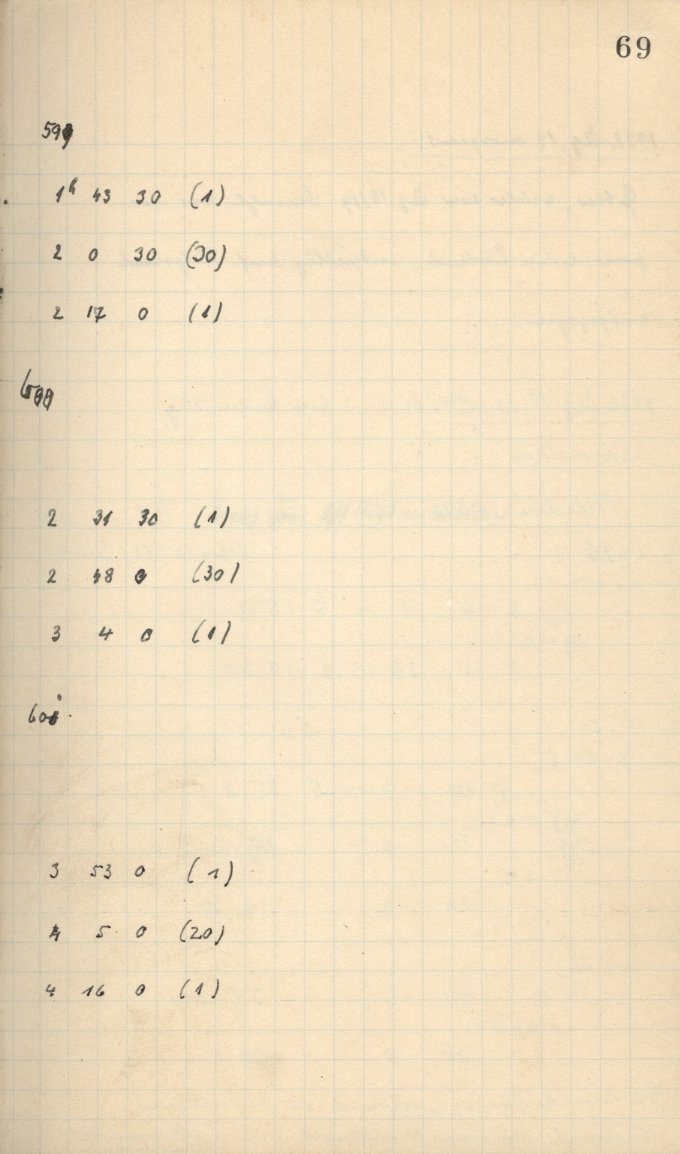 69
1h 43 30 (1)
2 0 30 (30)
2 17 0 (1)
2 31 30 (1)
2 48 0 (30)
3 4 0 (1)
3 53 0 (1)
4 5 0 (20)
4 16 0 (1)